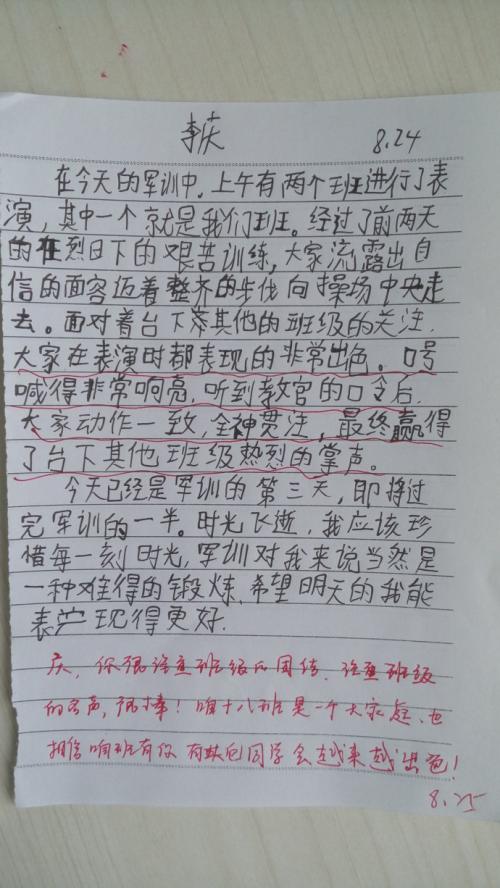 李庆 8.24
在今天的军训中,上午有两个班进行了表
演,其中一个就是我们班。经过了前两天
的在烈日下的艰苦训练,大家流露出自
信的面容迈着整齐的步伐向操场中央走
去。面对着台下其他的班级的关注.
大家在表演时都表现的非常出色。口号
喊得非常响亮,听到教官的口令后,
大家动作一致,全神贯注,最终赢得
了台下其他班级热烈的掌声。
今天已经是军训的第三天,即将过
完军训的一半。时光飞逝,我应该珍
惜每一刻时光,军训对我来说当然是
一种难得的锻炼.希望明天的我能
表现得更好.
庆,你很注重班级的团结,注重班级
的名声,很棒!咱十八班是一个大家庭、也
相信咱班有你 同学会越来越出色!
8.25